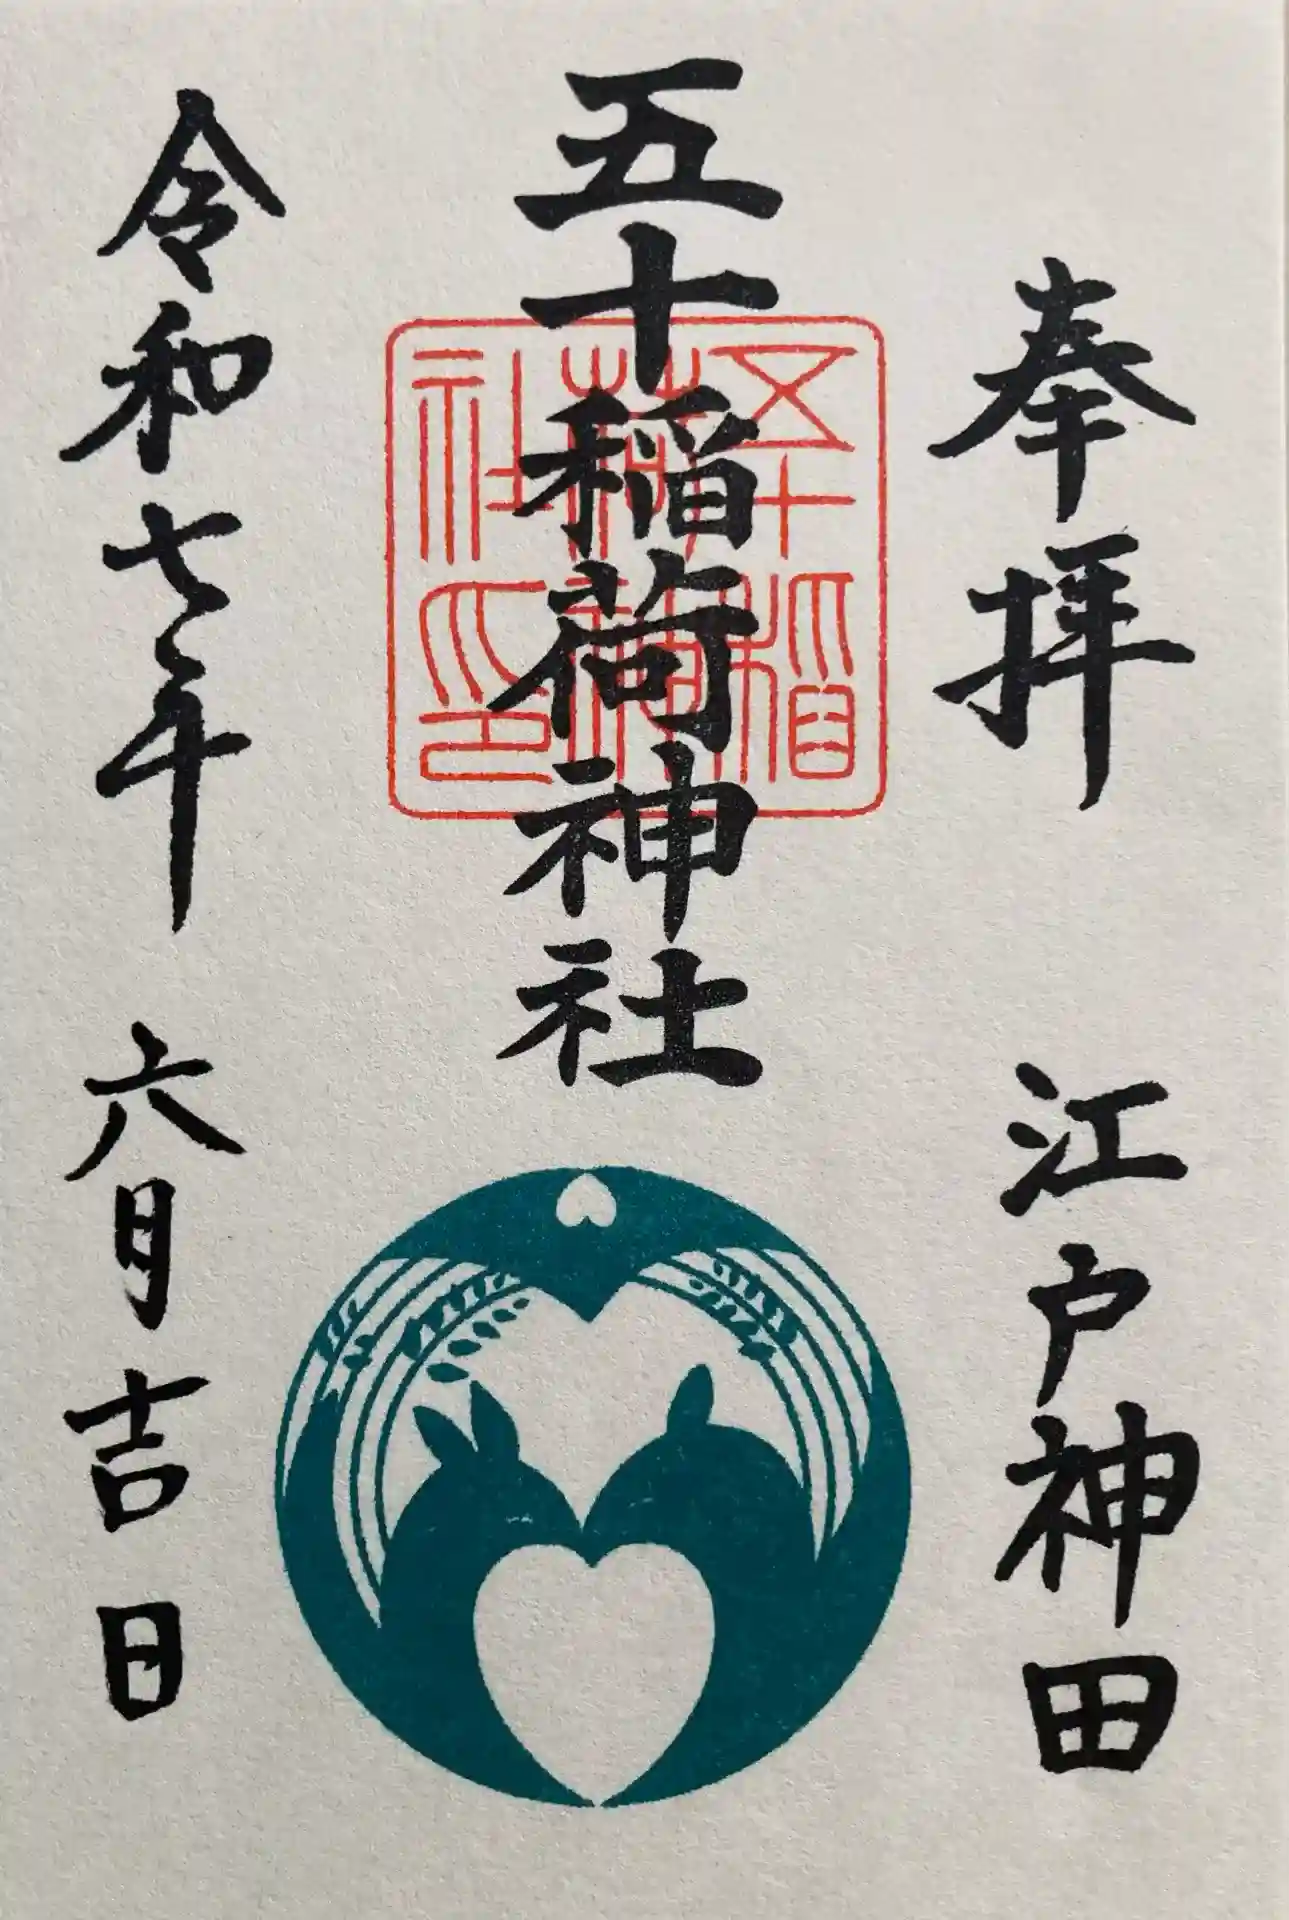 奉拝　江戸神田
五十稲荷神社
五十稲荷神社印
令和七年　六月吉日